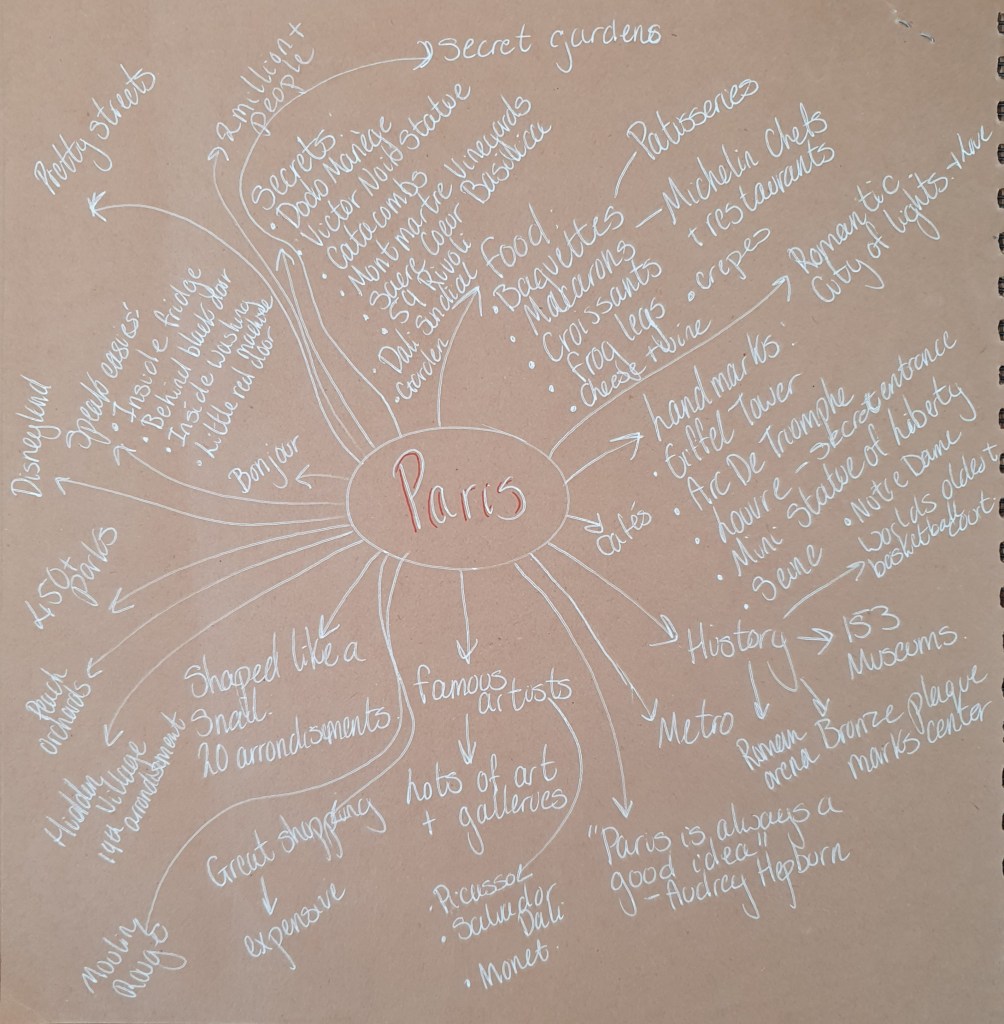 Paris
2 million+
people
Secret gardens
Pretty streets
Secrets:
• Dodo Manège
Victor Noir Statue
• Catacombs
• Montmartre Vineyards
Sacre Coeur Basilica
• 59 Rivoli
• Dali Sundial
• Garden
Food:
• Baguettes
Makarons
Croissants
• Frog legs
• Cheese + wine
Patisseries
Michelin Chefs
+ restaurants
• crepes
Romanztic
City of lights + love
Landmarks:
• Eiffel Tower
• Arc De Triomphe
• Louvre - secret entrance
• Mini Statue of Liberty
• Seine
• Notre Dame
Cafés
History
worlds oldest
basketball court.
153
Museums.
Bronze plaque
marks center
Roman
arena
Metro
"Paris is always a
good idea"
- Audrey Hepburn
famous
artists
Lots of art
+ galleries
• Salvador
Dali
• Monet.
Shaped like a
Snail.
20 arrondisments
Great shopping
expensive
Moulin
Hidden
Village
arrondissment
Peach
orchards
450+
parks
Disneyland
Speak easies:
• Inside fridge
• Behind black door
Inside washing
machine
• Little red door
Bonjour